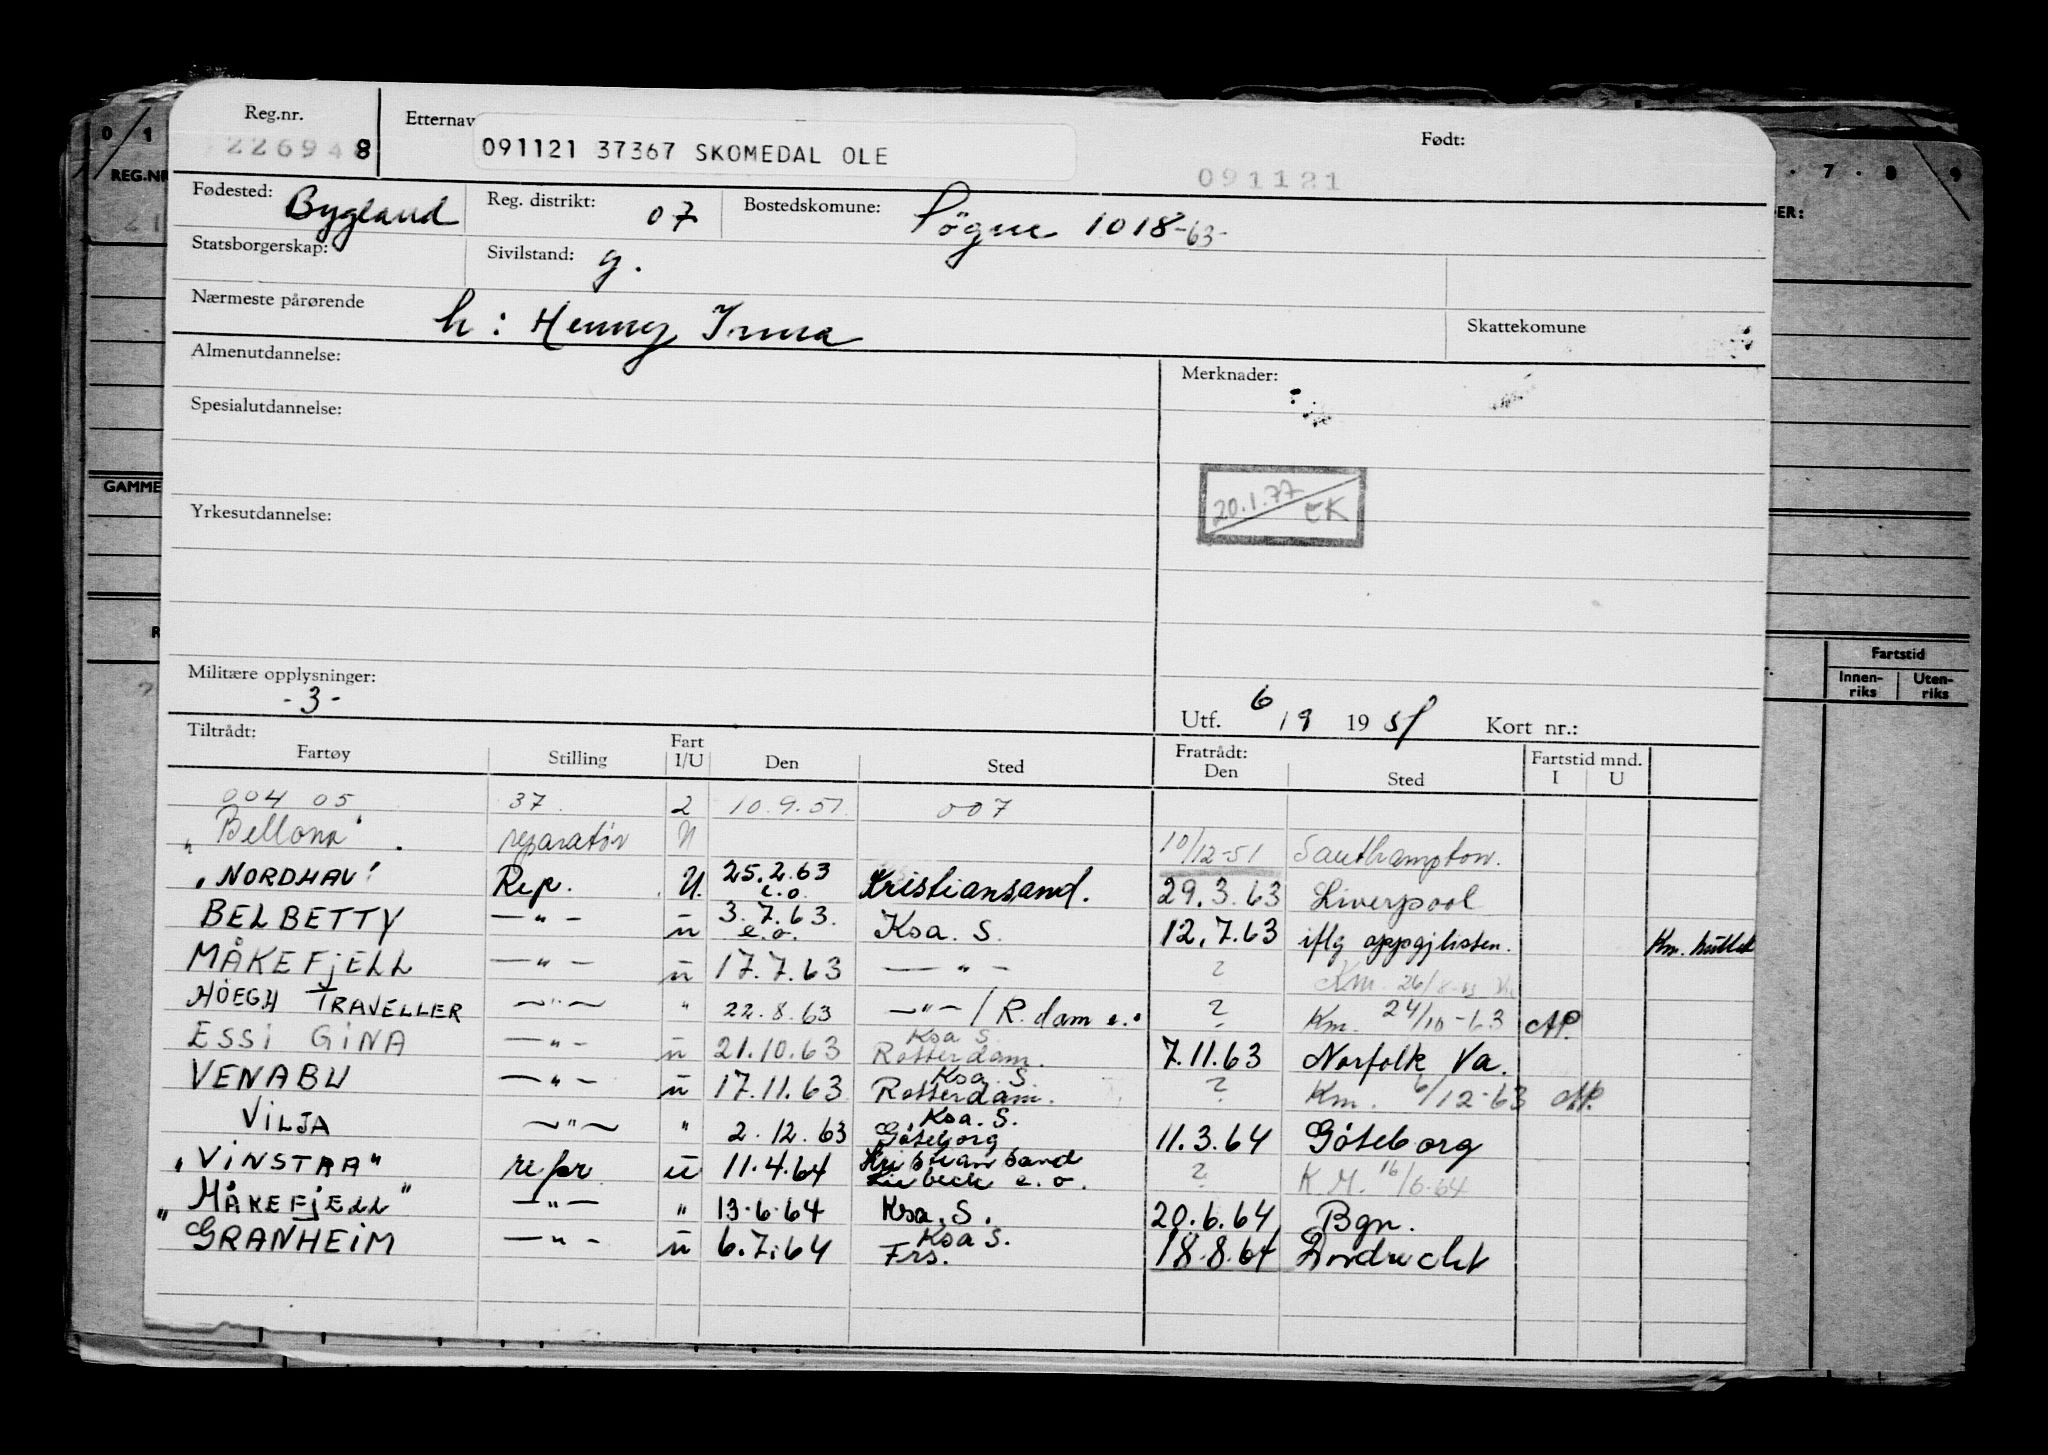 Reg.nr. Etternav Født:
226948 091121 37367 SKOMEDAL OLE 091121
Fødested: Bygland Reg. distrikt: 07 Bostedskomune: Søgne 1018-63-
Statsborgerskap: Sivilstand: g.
Nærmeste pårørende h: Henny Irma Skattekomune
Almenutdannelse: Merknader:
Spesialutdannelse:
20.1.77 EK
Yrkesutdannelse:
Militære opplysninger: -3-
Utf. 6/9 1951 Kort nr.:
Tiltrådt: Fartøy Stilling Fart I/U Den Sted Fratrådt: Den Sted Fartstid mnd. I U
004 05 37 2 10.9.51 007
"Bellona" reparatör U 10/12-51 Southampton.
"NORDHAV" Rep. U. 25.2.63 e.o. Kristiansand. 29.3.63 Liverpool
BELBETTY —"— u 3.7.63. e.o. Ksa. S. 12.7.63 iflg oppgj listen. Km.
MÅKEFJELL —"— u 17.7.63 —"— ? Km. 26/8-63
HÖEGH TRAVELLER —"— " 22.8.63 —"—/R.dam e.o ? Km. 24/10-63 AP.
ESSI GINA —"— u 21.10.63 Ksa S. Rotterdam. 7.11.63 Norfolk Va.
VENABU —"— u 17.11.63 Ksa. S. Rotterdam. ? Km. 6/12-63 AP.
VILJA —"— " 2.12.63 Ksa. S. Göteborg 11.3.64 Göteborg
"VINSTRA" repr u 11.4.64 Kristiansand Lübeck e.o. ? K.M. 16/6-64
"MÅKEFJELL" —"— " 13.6.64 Ksa. S. 20.6.64 Bgn.
"GRANHEIM —"— u 6.7.64 Ksa S. Frs. 18.8.64 Dordrecht
REG.NR
GAMME
7 8 9
DER:
Fartstid
Innen-riks Uten-riks